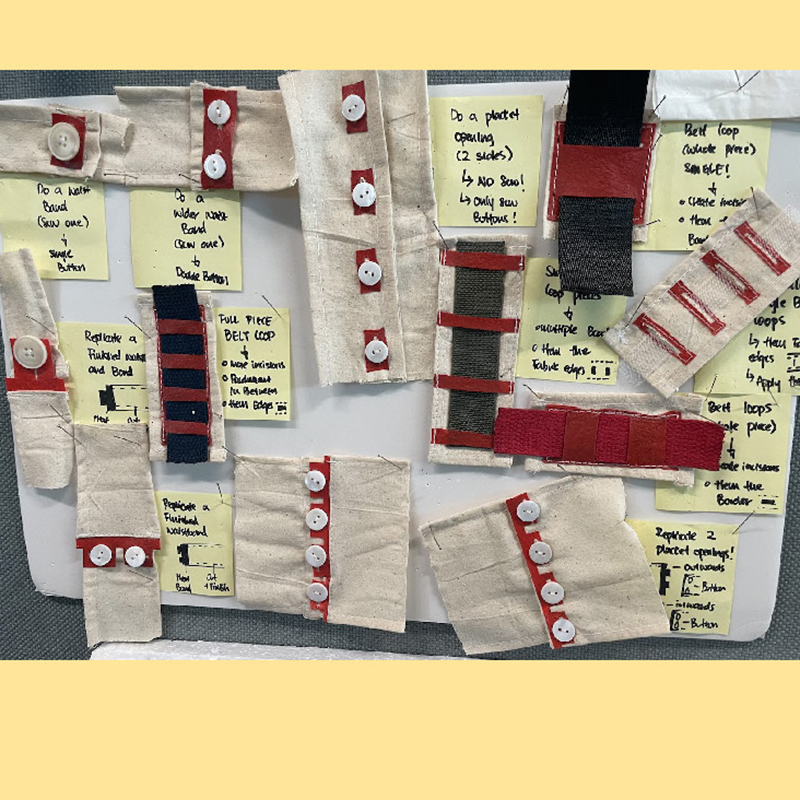 Do a waist
Band
(Sew one)
↳ Single
Button
Do a
Wider waist
Band
(Sew one)
↳
Double Button
Do a placket
opening
(2 sides)
↳ No Sew!
↳ Only Sew
Buttons!
Belt loop
(whole piece)
SINGLE!
↓
Create
Hem the
Replicate a
Finished
and Band
FULL PIECE
BELT LOOP
↳
More incisions
In Between
Hem Edges
loop pieces
↳
Multiple
Hem the
Fabric edges
Belt
loops
↳ Hem
edges
↳ Apply
Belt loops
piece)
incisions
Hem the
Border
Replicate a
Finished
Waistband
Band
Cut
+ Finish
Replicate 2
placket openings!
outwards
Button
inwards
Button